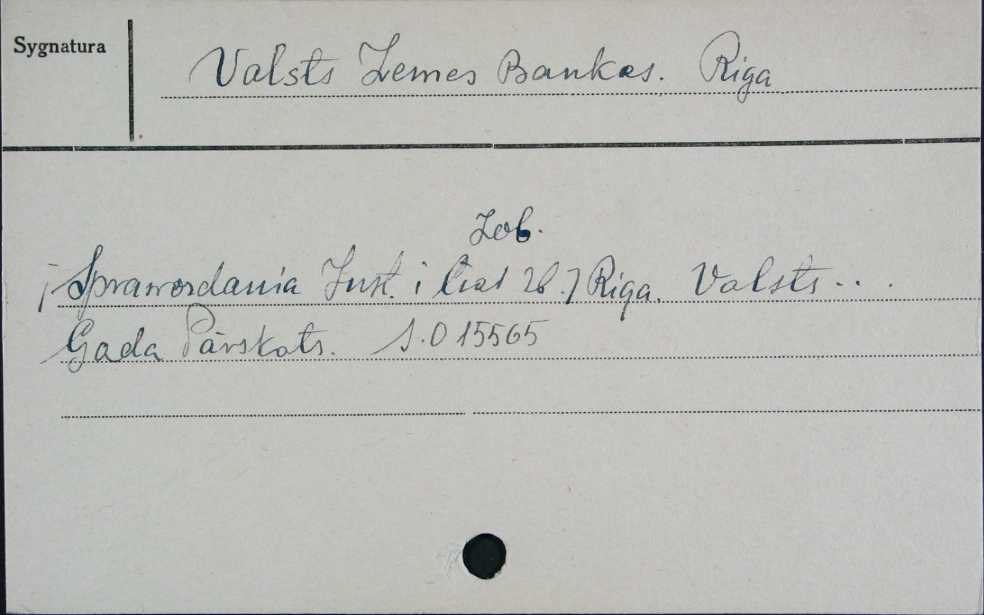 Sygnatura
Valsts Zemes Bankas. Riga
Zob.
Sprawozdania Inst. i Czas Zb.] Riga. Valsts...
Gada Pārskats. S.O 15565